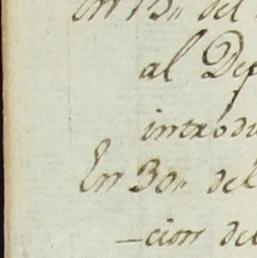 En 13,, del
al De
introdu
En 30,, del
-cion de